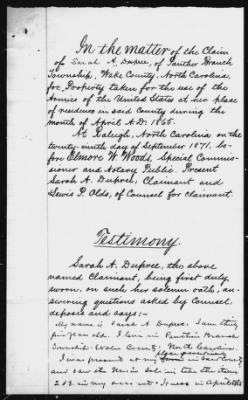 In the matter of the Claim
of Sarah A. Dupree, of Panther Branch
Township, Wake County, North Carolina,
for Property taken for the use of the
Armies of the United States at her place
of residence in said County during the
month of April A.D. 1865.
At Raleigh, North Carolina on the
twenty-ninth day of September 1871, be-
fore Elmore W. Woods, Special Commis-
sioner and Notary Public. Present
Sarah A. Dupree, Claimant and
Lewis P. Olds, of Counsel for claimant.
Testimony.
Sarah A. Dupree, the above
named Claimant, being first duly
sworn, on such her solemn oath, an-
swering questions asked by Counsel
deposes and says:-
My name is Sarah A Dupree. I am thirty
five years old. I live in Panther Branch
Township Wake County, North Carolina.
I was present at my in said County
and saw the Union Soldiers take the items
2 & 3 in my account. It was in April 1865